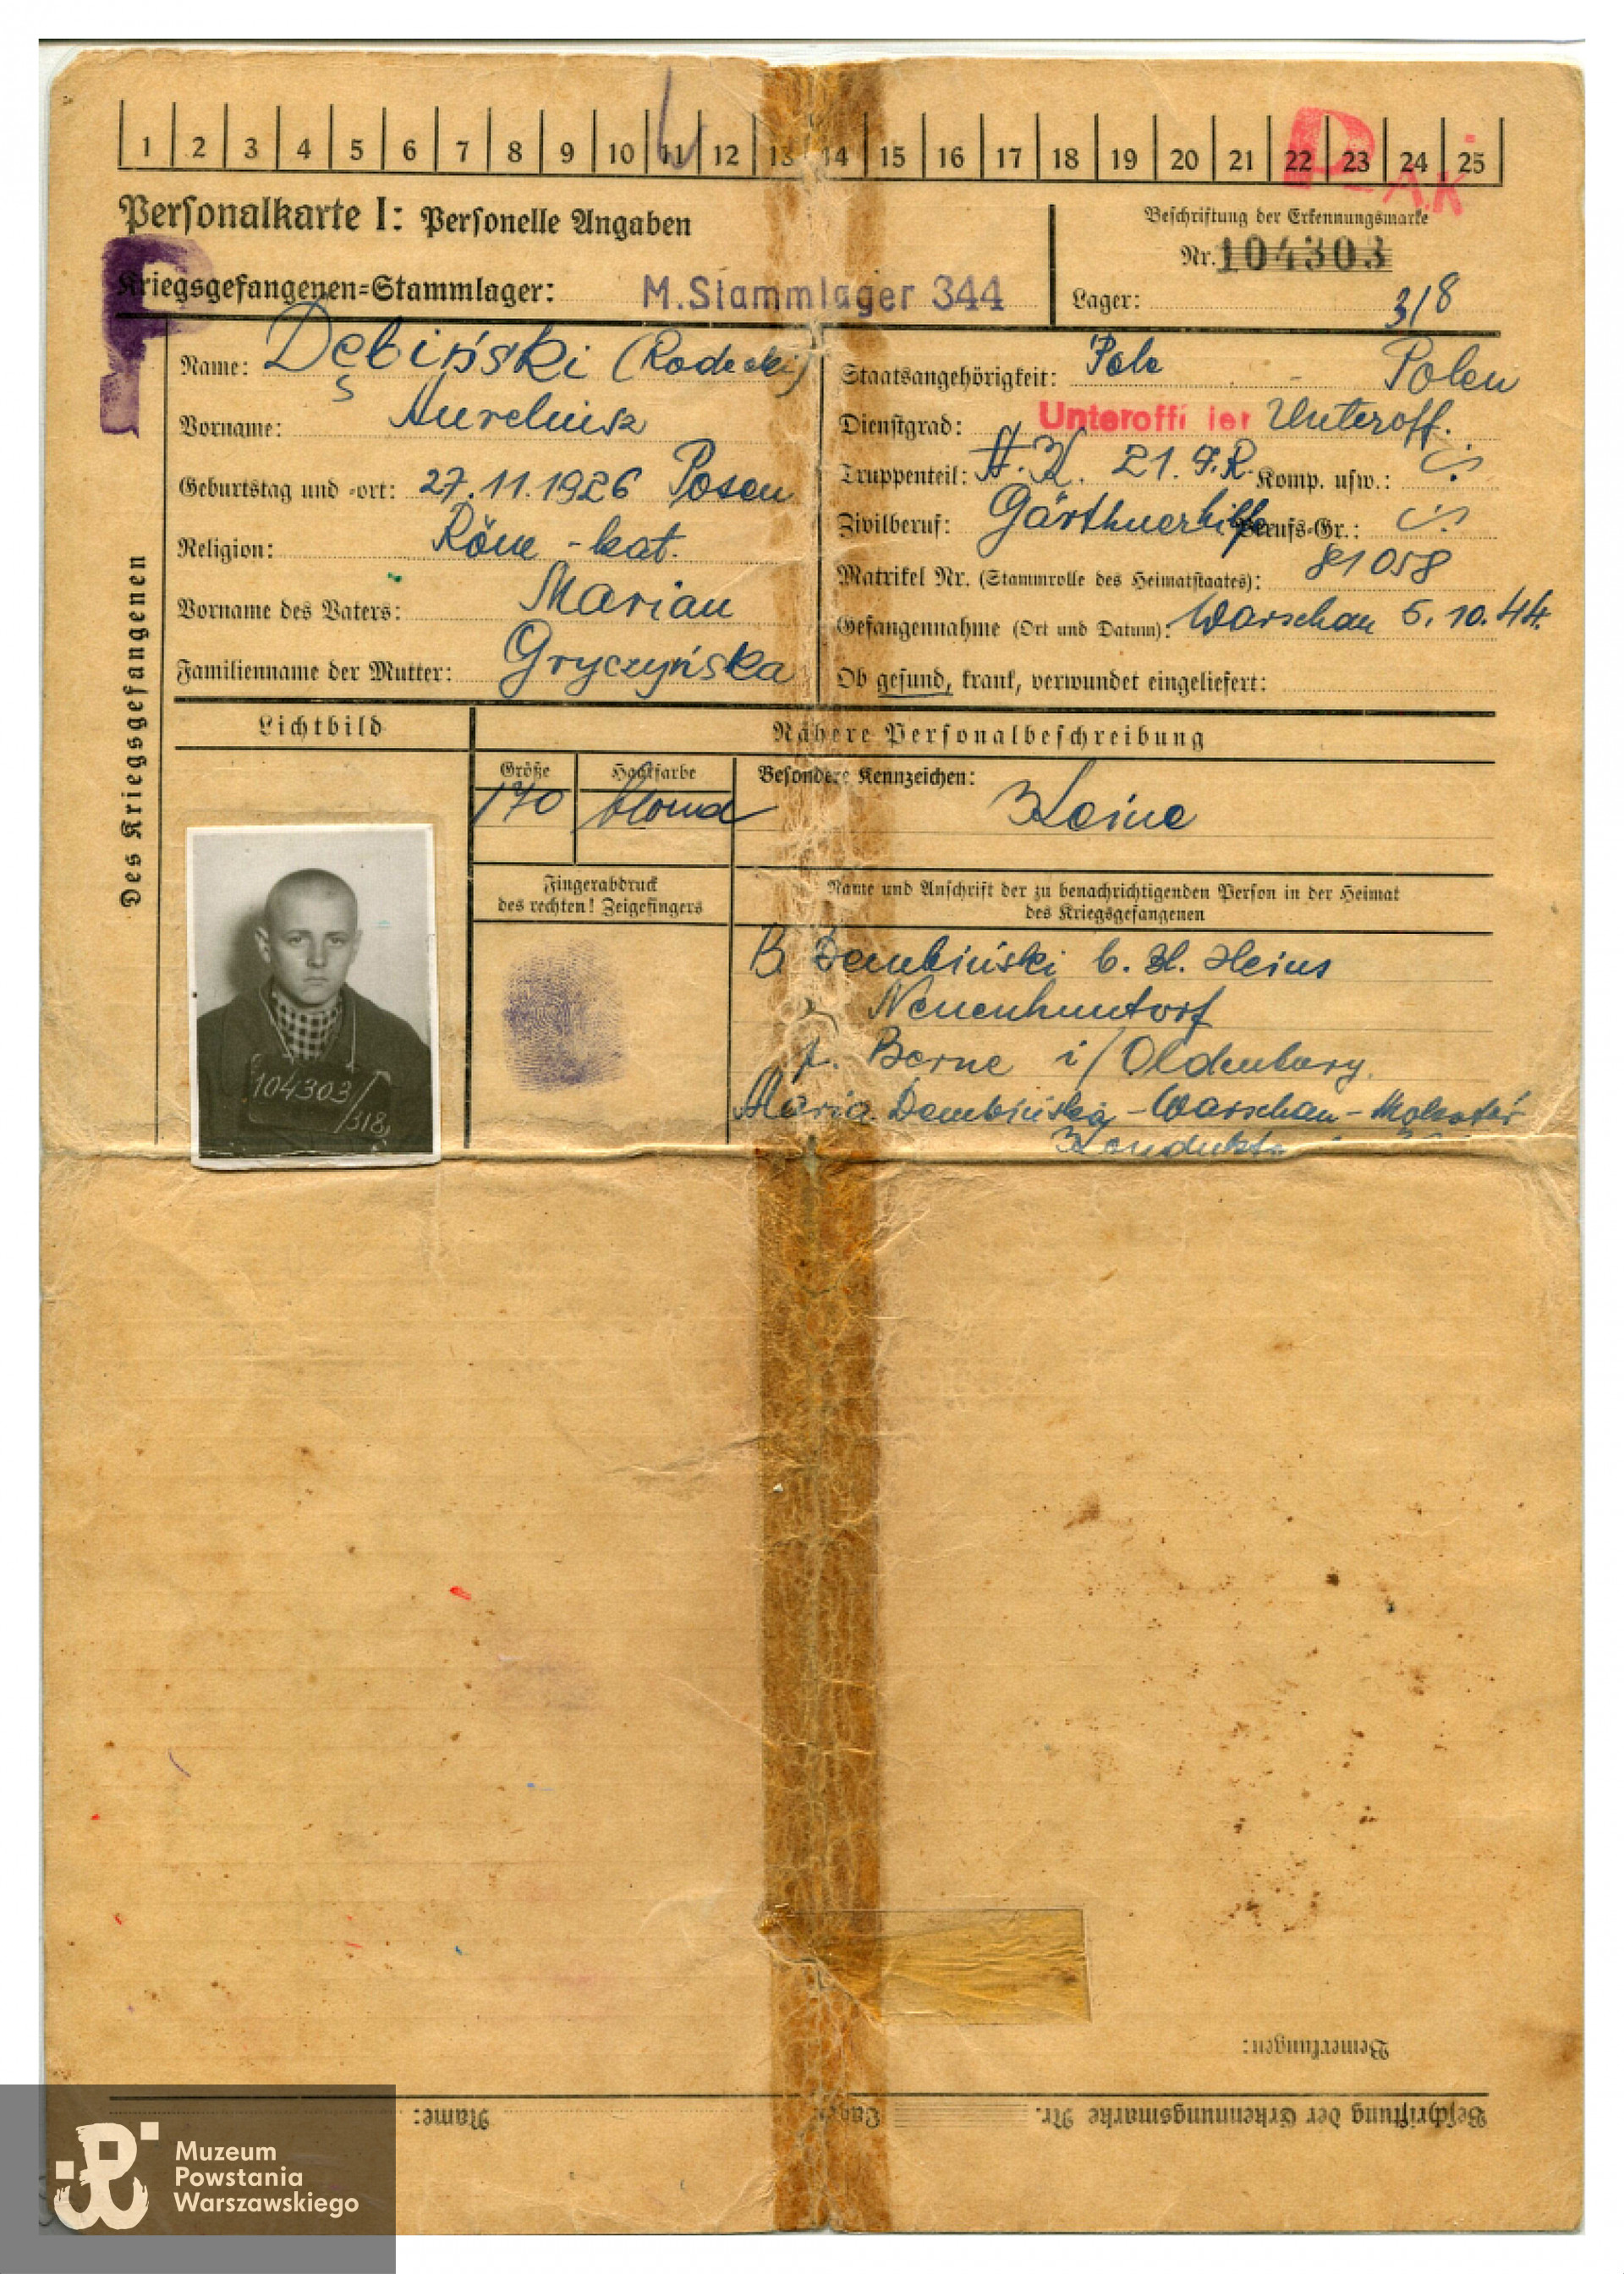 1 2 3 4 5 6 7 8 9 10 11 12 13 14 15 16 17 18 19 20 21 22 23 24 25
P-AK
Personalkarte I: Personelle Angaben
Beschriftung der Erkennungsmarke
Nr. 104303
Kriegsgefangenen=Stammlager: M.Stammlager 344
Lager: 318
Des Kriegsgefangenen
Name: Dębiński (Rodecki)
Vorname:
Geburtstag und -ort: 27.11.1926 Posen
Religion: Röm-kat.
Vorname des Vaters: Marian
Familienname der Mutter: Gryczyńska
Staatsangehörigkeit: Pole Polen
Dienstgrad: Unteroffi ier Unteroff.
Truppenteil: A.K. 21. I.R. Komp. usw.:
Zivilberuf: Gärthnerhilfe Berufs-Gr.:
Matrikel Nr. (Stammrolle des Heimatstaates): 81058
Gefangennahme (Ort und Datum): Warschau 5.10.44.
Ob gesund, krank, verwundet eingeliefert:
Lichtbild
Nähere Personalbeschreibung
Größe
170
Haarfarbe
blond
Besondere Kennzeichen: Keine
Fingerabdruck
des rechten! Zeigefingers
Name und Anschrift der zu benachrichtigenden Person in der Heimat
des Kriegsgefangenen
B. Dembiński b. H. Heins
Neuenhuntorf
p. Berne i/Oldenburg
Maria Dembińska - Warschau - Mokotów
104303/318
Bemerkungen:
Beschriftung der Erkennungsmarke Nr. Lager: Name:
Muzeum
Powstania
Warszawskiego